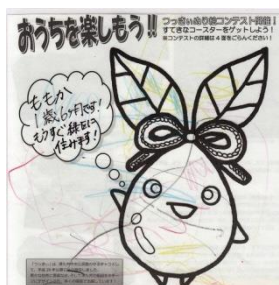 おうちを楽しもう!!
つっきぃぬり絵コンテスト開催!
すてきなコースターをゲットしよう!
※コンテストの詳細は4面をごらんください!
ももか
1歳6か月です!
もうすぐ緑区に
住みます!